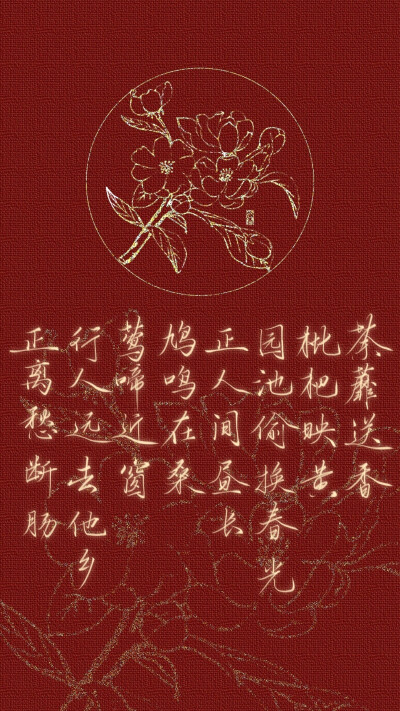 荼蘼送香
枇杷映黄
园池偷换春光
正人间昼长
鸠鸣在桑
莺啼近窗
行人远去他乡
正离愁断肠